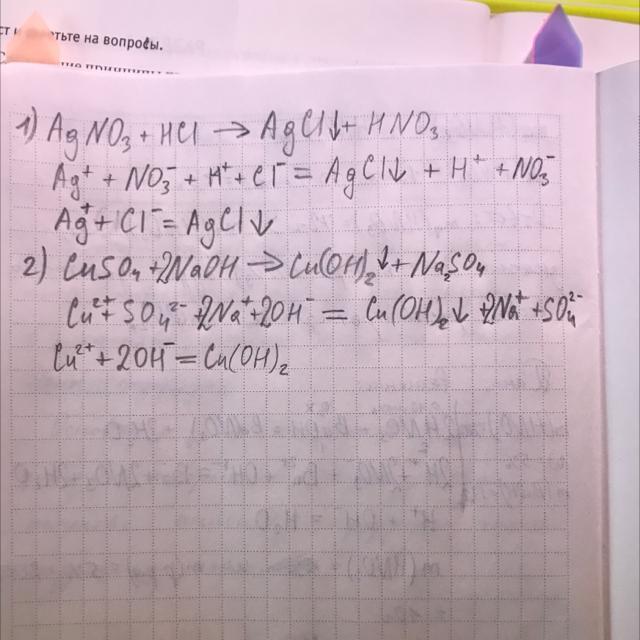 ст тьте на вопросы.
1) AgNO₃ + HCl → AgCl↓ + HNO₃
Ag⁺ + NO₃⁻ + H⁺ + Cl⁻ = AgCl↓ + H⁺ + NO₃⁻
Ag⁺ + Cl⁻ = AgCl↓
2) CuSO₄ + 2NaOH → Cu(OH)₂↓ + Na₂SO₄
Cu²⁺ + SO₄²⁻ + 2Na⁺ + 2OH⁻ = Cu(OH)₂↓ + 2Na⁺ + SO₄²⁻
Cu²⁺ + 2OH⁻ = Cu(OH)₂